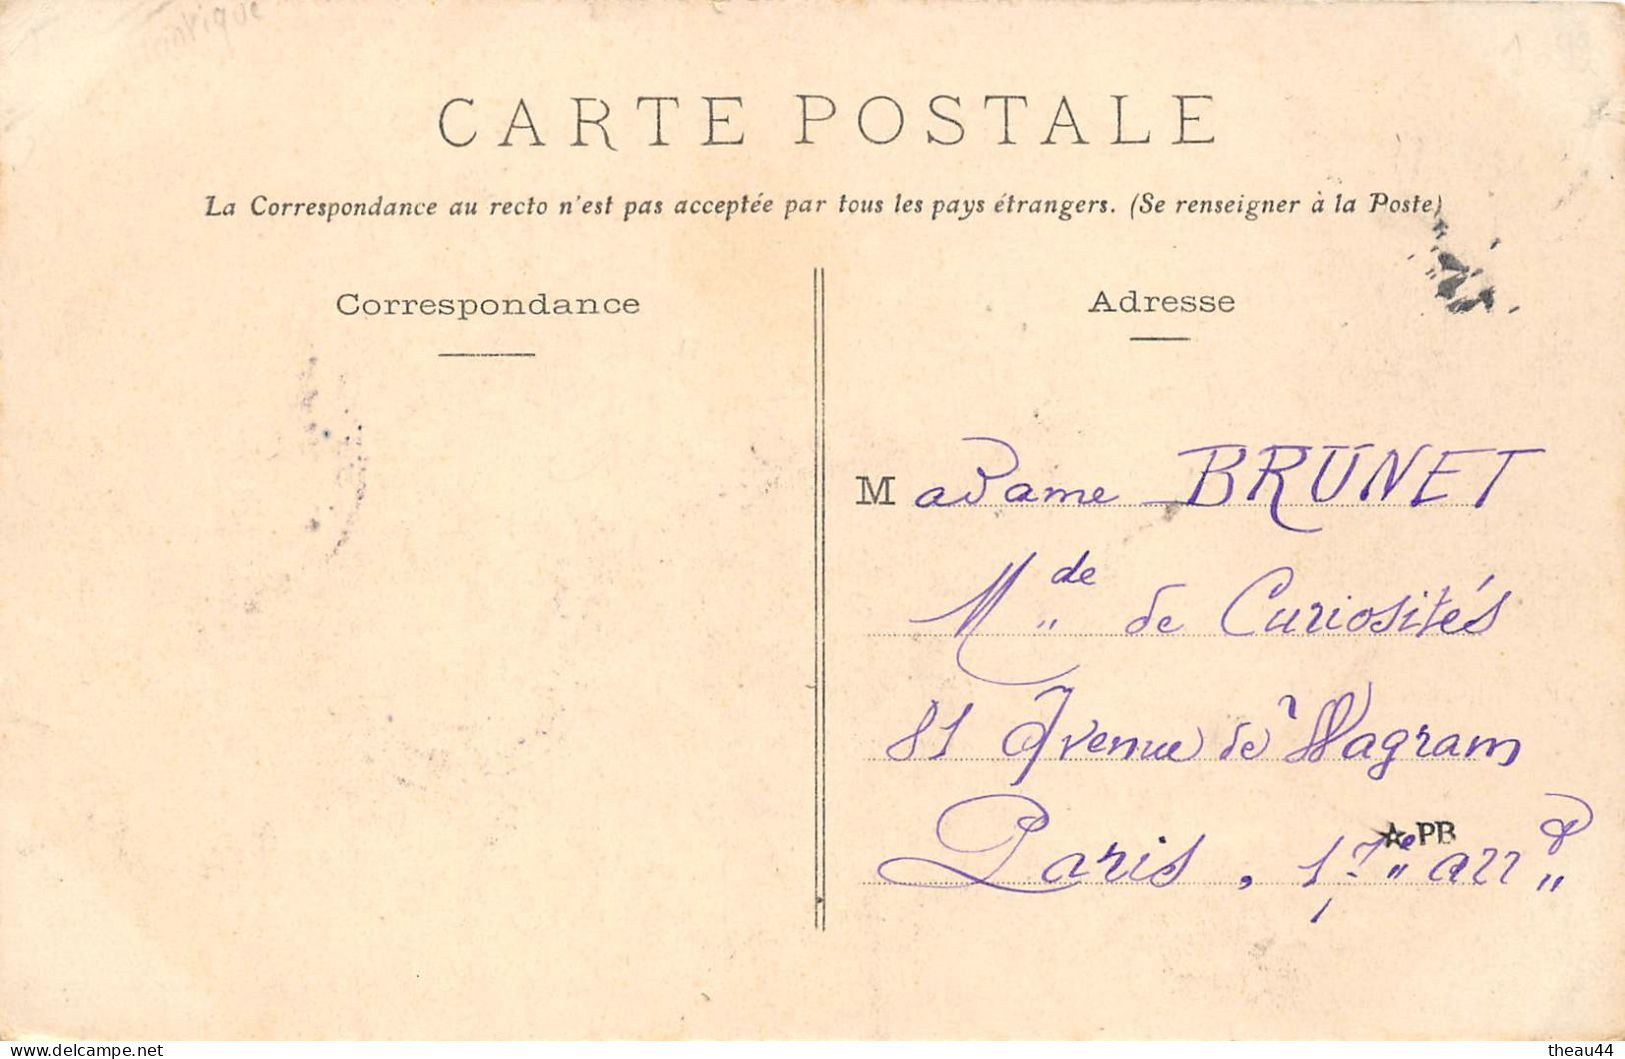 CARTE POSTALE
La Correspondance au recto n'est pas acceptée par tous les pays étrangers. (Se renseigner à la Poste)
Correspondance
Adresse
Madame BRUNET
Mde de Curiosités
81 Avenue de Wagram
PB
Paris, 17e arrt
www.delcampe.net
theau44